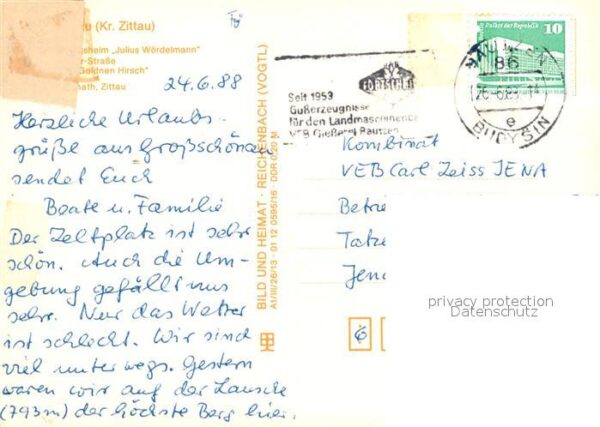 u (Kr. Zittau)
sheim „Julius Wördelmann"
r-Straße
Goldnen Hirsch"
math, Zittau
24.6.88
Herzliche Urlaubs-
grüße aus Großschönau
sendet Euch
Beate u. Familie
Der Zeltplatz ist sehr
schön. Auch die Um-
gebung gefällt uns
sehr. Nur das Wetter
ist schlecht. Wir sind
viel unterwegs. Gestern
waren wir auf der Lausche
(793m) der höchste Berg hier.
BILD UND HEIMAT · REICHENBACH (VOGTL)
A1/III/26/13 · 01 12 0595/16 · DDR 0,20 M
FORTSCHRITT
Seit 1953
Gußerzeugnisse
für den Landmaschinenbau
VEB Gießerei Bautzen
Palast der Republik
10
BAUTZEN
86
e
BUDYŠIN
Kombinat
VEB Carl Zeiss JENA
Betrie
Tatze
Jena
6
privacy protection
Datenschutz